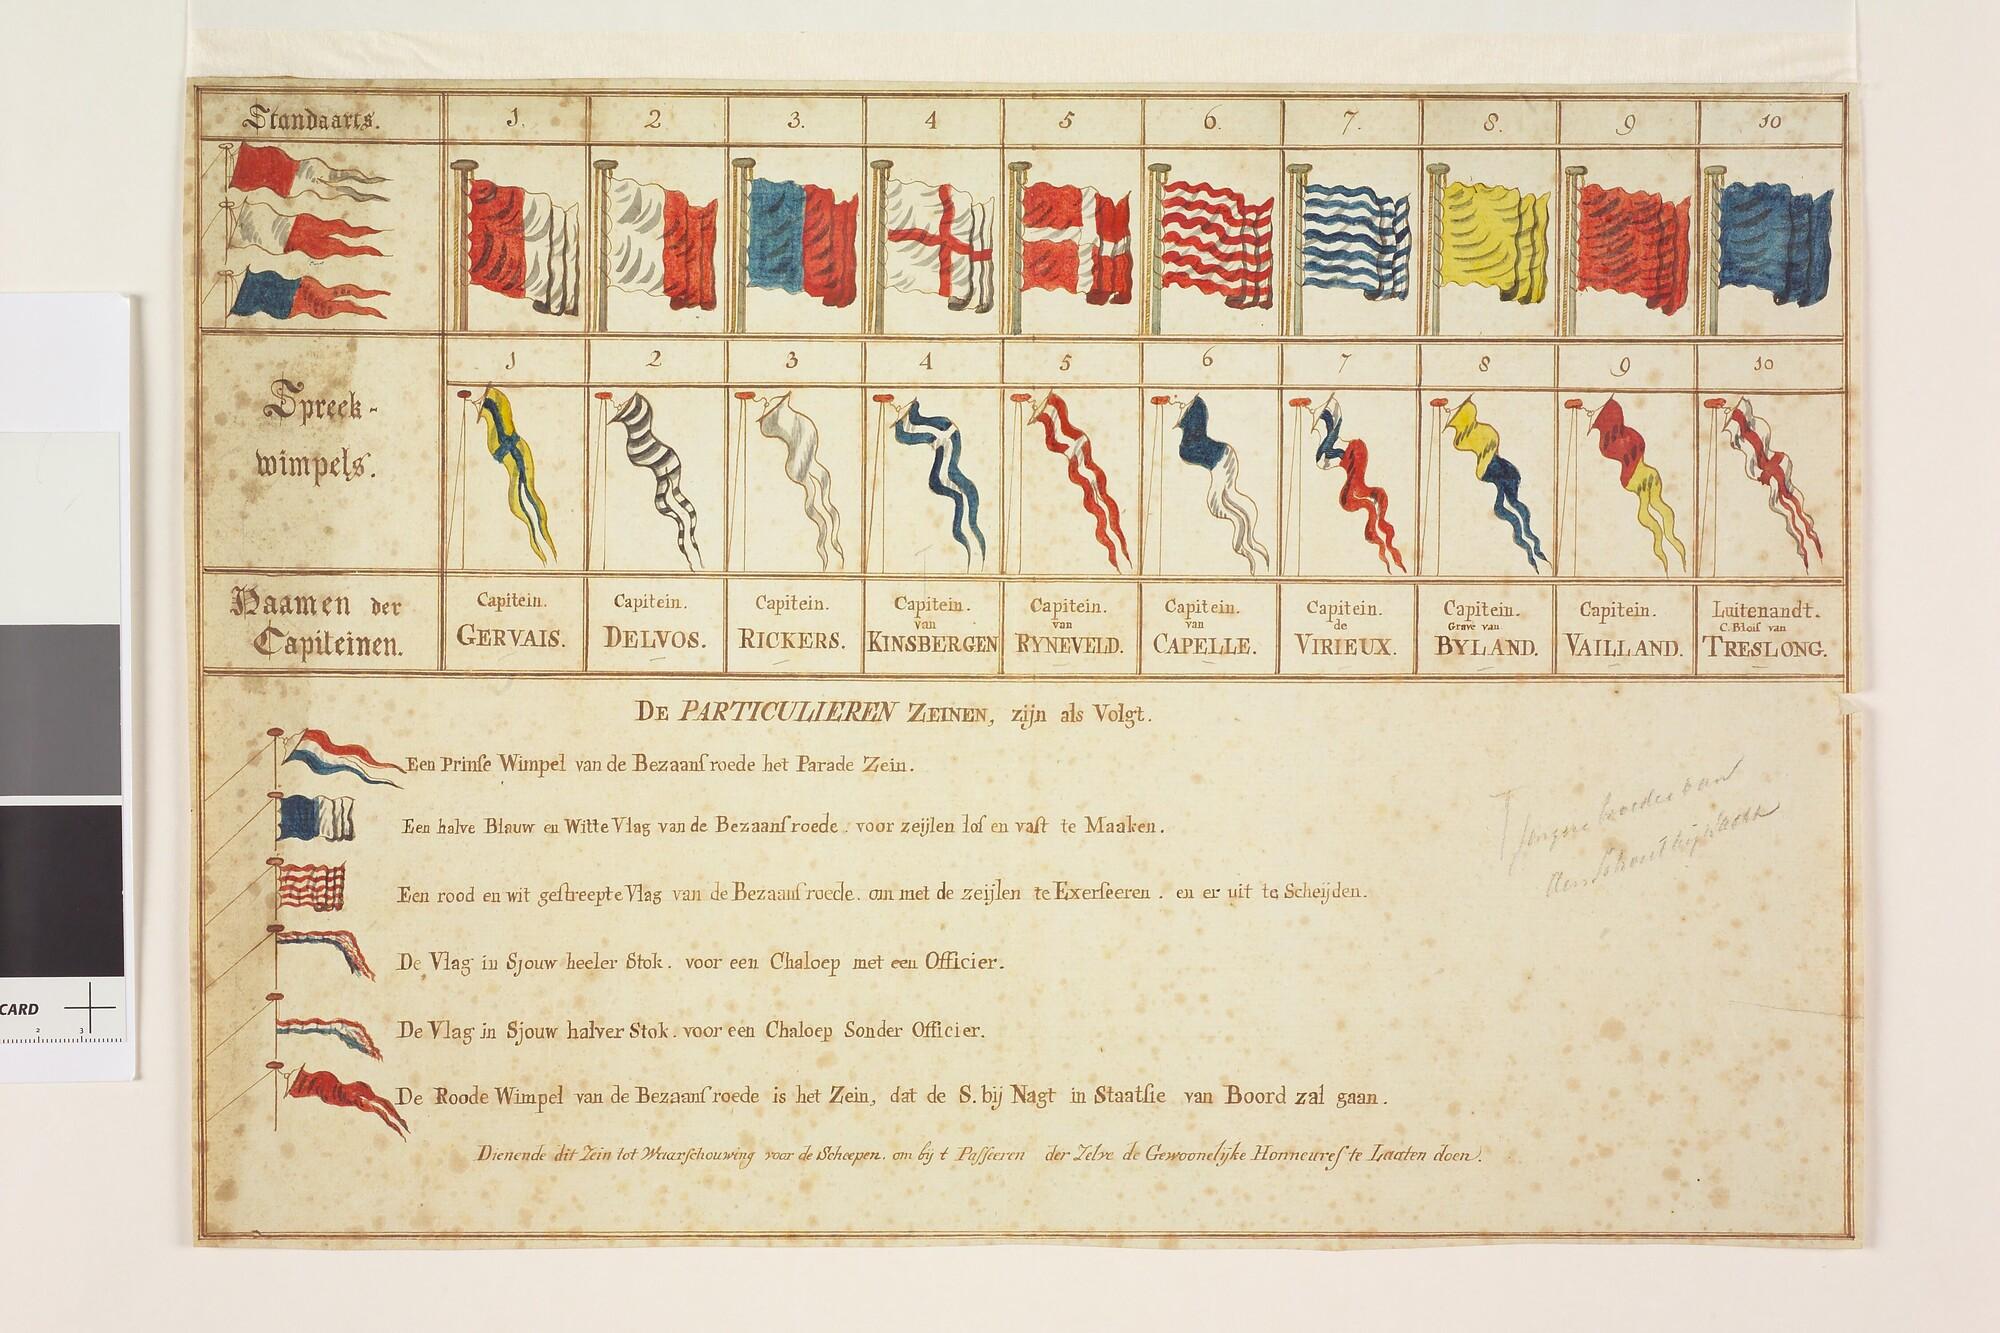 Standaarts.
1. 2 3. 4 5 6. 7. 8. 9 10
1 2 3 4 5 6 7 8 9 10
Spreek-
wimpels.
Naamen der
Capiteinen.
Capitein.
GERVAIS.
Capitein.
DELVOS.
Capitein.
RICKERS.
Capitein.
van
KINSBERGEN
Capitein.
van
RYNEVELD.
Capitein.
van
CAPELLE.
Capitein.
de
VIRIEUX.
Capitein.
Grave van
BYLAND.
Capitein.
VAILLAND.
Luitenandt.
C. Bloiſ van
TRESLONG.
DE PARTICULIEREN ZEINEN, zijn als Volgt.
Een Prinſe Wimpel van de Bezaanſ roede het Parade Zein.
Een halve Blauw en Witte Vlag van de Bezaanſ roede. voor zeijlen loſ en vaſt te Maaken.
Een rood en wit geſtreepte Vlag van de Bezaanſ roede. om met de zeijlen te Exerſeeren. en er uit te Scheijden.
De Vlag in Sjouw heeler Stok. voor een Chaloep met een Officier.
De Vlag in Sjouw halver Stok. voor een Chaloep Sonder Officier.
De Roode Wimpel van de Bezaanſ roede is het Zein, dat de S. bij Nagt in Staatſie van Boord zal gaan.
Dienende dit Zein tot Waarſchouwing voor de Scheepen. om bij t Paſſeeren der Zelve de Gewoonelijke Honneureſ te Laaten doen.
CARD
2 3